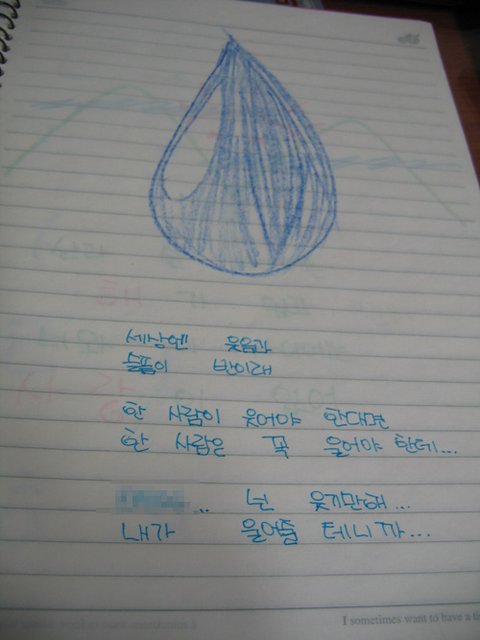 세상엔 웃음과
슬픔이 반이래
한 사람이 웃어야 한대면
한 사람은 꼭 울어야 한데...
.. 넌 웃기만해...
내가 울어줄 테니까...
I sometimes want to have a